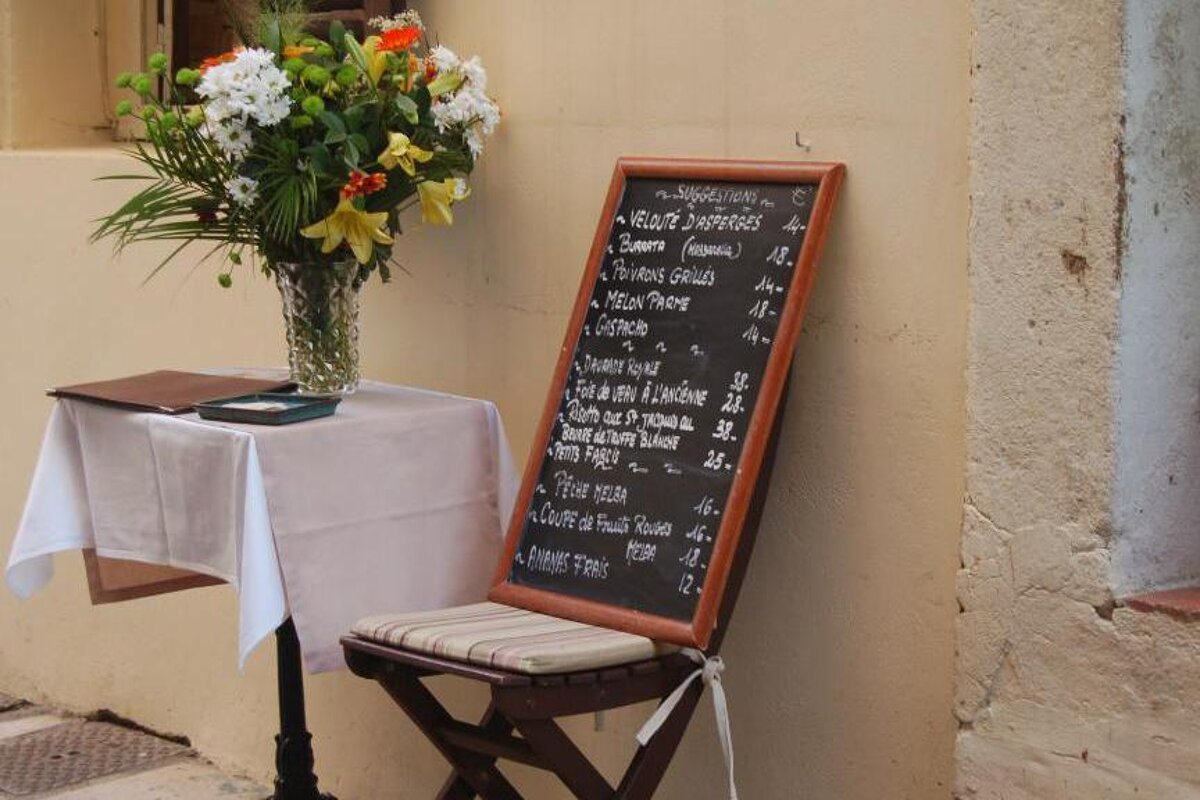 ~ SUGGESTIONS ~ €
~ VELOUTÉ D'ASPERGES 14-
~ BURRATA (Mozzarella) 18-
~ POIVRONS GRILLÉS 14-
~ MELON PARME 18-
~ GASPACHO 14-
~ ~ ~
~ DAURADE ROYALE 38-
~ FOIE de VEAU À L'ANCIENNE 28-
~ RISOTTO aux St JACQUES au 38-
BEURRE de TRUFFE BLANCHE
~ PETITS FARCIS 25-
~ ~ ~
~ PÊCHE MELBA 16-
~ COUPE de FRUITS ROUGES 16-
MELBA 18-
~ ANANAS FRAIS 12-